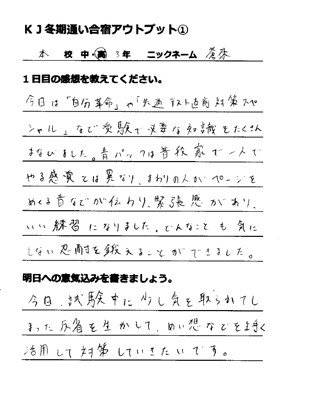 KJ冬期通い合宿アウトプット①
本 校 中・高 3年 ニックネーム 蒼来
1日目の感想を教えてください。
今日は「自分革命」や「共通テスト直前対策スペ
シャル」など受験で必要な知識をたくさん
まなびました。青パックは普段家で一人で
やる感覚とは異なり、まわりの人がページを
めくる音などが伝わり、緊張感があり、
いい練習になりました。どんなことも気に
しない忍耐を鍛えることができました。
明日への意気込みを書きましょう。
今日、試験中に少し気を取られてし
まった反省を生かして、めい想などを上手く
活用して対策していきたいです。